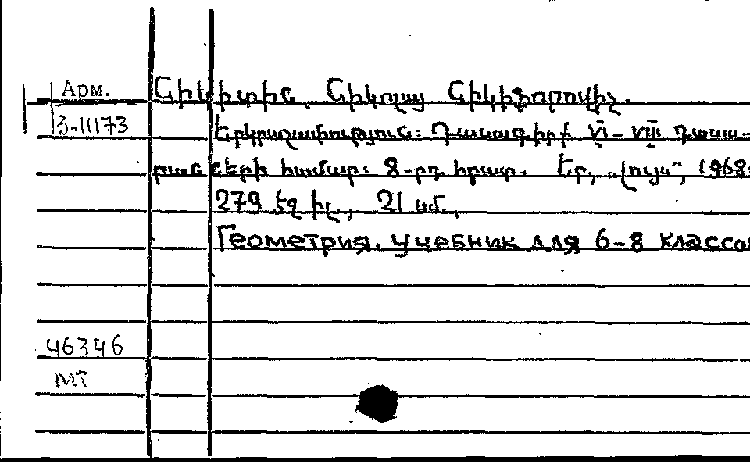 Арм.
Նիկիտին Նիկոլայ Նիկիֆորովիչ.
3-11173
Երկրաչափություն: Դասագիրք VI–VIII դասա-
րանների համար: 8-րդ հրատ. Եր., „Լույս“, 1968:
279 էջ իլ., 21 սմ.,
Геометрия. Учебник для 6–8 классов
46346
МТ